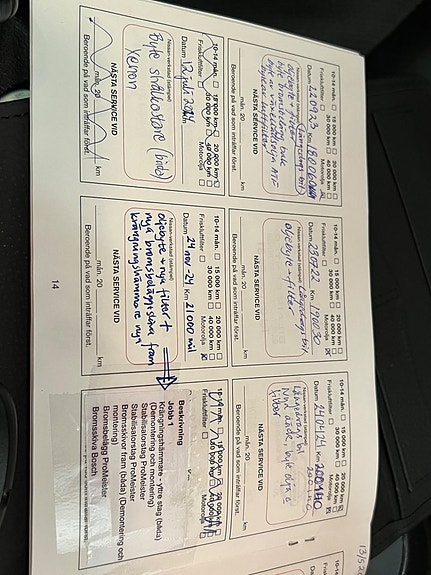 10-14 mån. 15 000 km 20 000 km
30 000 km 40 000 km
Friskluftfilter Motorolja
Datum 220923 Km
Nissan-verkstad (stämpel)
oljebyte + filter
byte bromsbelägg bak
NÄSTA SERVICE VID
mån. 20 km
Beroende på vad som inträffar först.
10-14 mån. 15 000 km 20 000 km
30 000 km 40 000 km
Friskluftfilter Motorolja
Datum 230722 Km 190030
Nissan-verkstad (stämpel)
oljebyte + filter
NÄSTA SERVICE VID
mån. 20 km
Beroende på vad som inträffar först.
10-14 mån. 15 000 km 20 000 km
30 000 km 40 000 km
Friskluftfilter Motorolja
Datum 240424 Km
Nissan-verkstad (stämpel)
NÄSTA SERVICE VID
mån. 20 km
Beroende på vad som inträffar först.
10-14 mån. 15 000 km 20 000 km
30 000 km 40 000 km
Friskluftfilter Motorolja
Datum 12 juli 2024
Nissan-verkstad (stämpel)
Byte strålkastare (båda)
Xenon
NÄSTA SERVICE VID
mån. 20 km
Beroende på vad som inträffar först.
10-14 mån. 15 000 km 20 000 km
30 000 km 40 000 km
Friskluftfilter Motorolja
Datum 24 nov -24 Km 21000 mil
Nissan-verkstad (stämpel)
oljebyte + nya filter +
nya bromsbelägg+skivor fram
krängningshämmare nya
NÄSTA SERVICE VID
mån. 20 km
Beroende på vad som inträffar först.
10-14 mån. 15 000 km 20 000 km
Friskluftfilter
Beskrivning
Jobb 1
Krängningshämmare - yttre stag (båda)
(Demontering och montering)
Stabilisatorstag ProMeister
Stabilisatorstag ProMeister
Bromsskivor fram (båda) (Demontering och
montering)
Bromsbelägg ProMeister
Bromsskiva Bosch
14